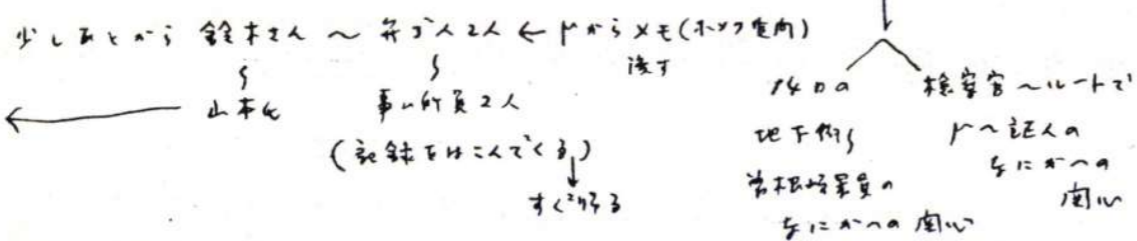 少しあとから 鈴木さん 〜 弁ゴ人2人 ← から メモ(ホッチ
渡す
山本氏
事ム所員2人
(記録をはこんでくる)
すぐ帰る
14日の
地下街
曽根崎署員の
なにかへの 関心
検察官〜ルートで
〜証人の
なにかへの
関心